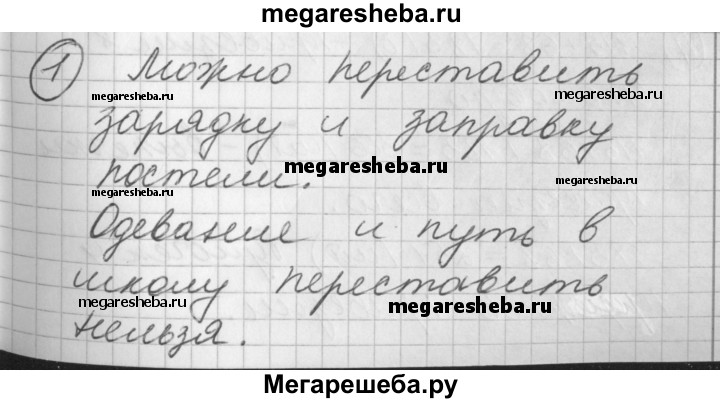 megaresheba.ru
1 Можно переставить
megaresheba.ru megaresheba.ru
зарядку и заправку
megaresheba.ru
постели.
megaresheba.ru megaresheba.ru
Одевание и путь в
школу переставить
megaresheba.ru megaresheba.ru megaresheba.ru
нельзя.
Мегарешеба.ру